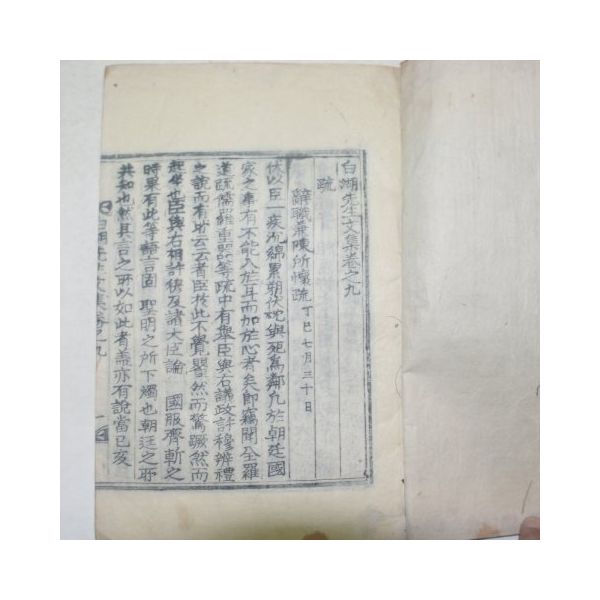 白湖先生文集卷之九
疏
辭職兼陳所懷疏 丁巳七月三十日
伏以臣一疾沉綿累朔伏枕與死爲鄰凡於朝廷國
家之事有不能入於耳而加於心者矣即竊聞全羅
道疏儒羅重器等疏中有擧臣與右議政許穆辨禮
之說而有所云云者臣於此不覺瞿然而驚蹶然而
起坐也臣與右相許穆及諸大臣論 國服齊斬之
時果有此等語言固 聖明之所下燭也朝廷之所
共知也然其言之所以如此者盖亦有說當己亥
白湖先生文集卷之九 一